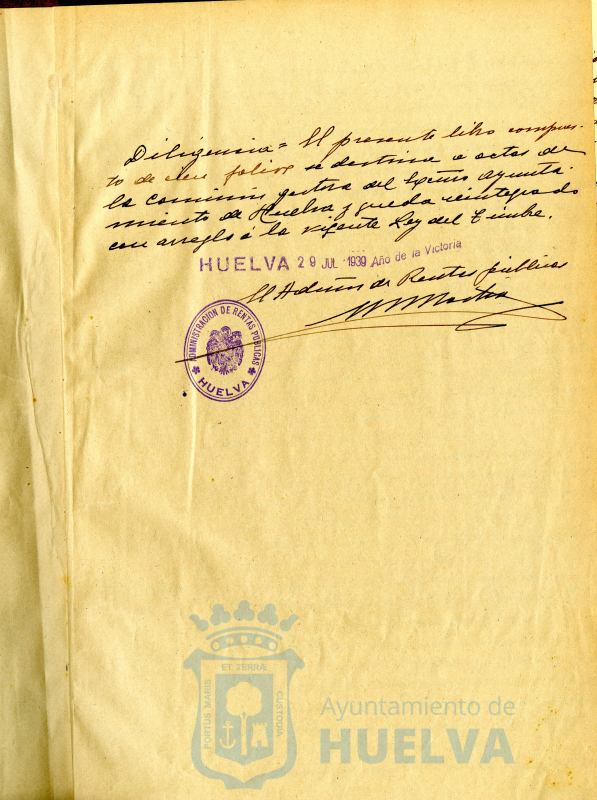 Diligencia = El presente libro compues-
to de cien folios se destina a actas de
la comisión gestora del Excmo Ayunta-
miento de Huelva y queda reintegrado
con arreglo á la vigente Ley del Timbre.
HUELVA 29 JUL 1939 Año de la Victoria
El Admor de Rentas públicas
ADMINISTRACION DE RENTAS PUBLICAS
HUELVA
PORTUS MARIS ET TERRÆ CUSTODIA
Ayuntamiento de
HUELVA